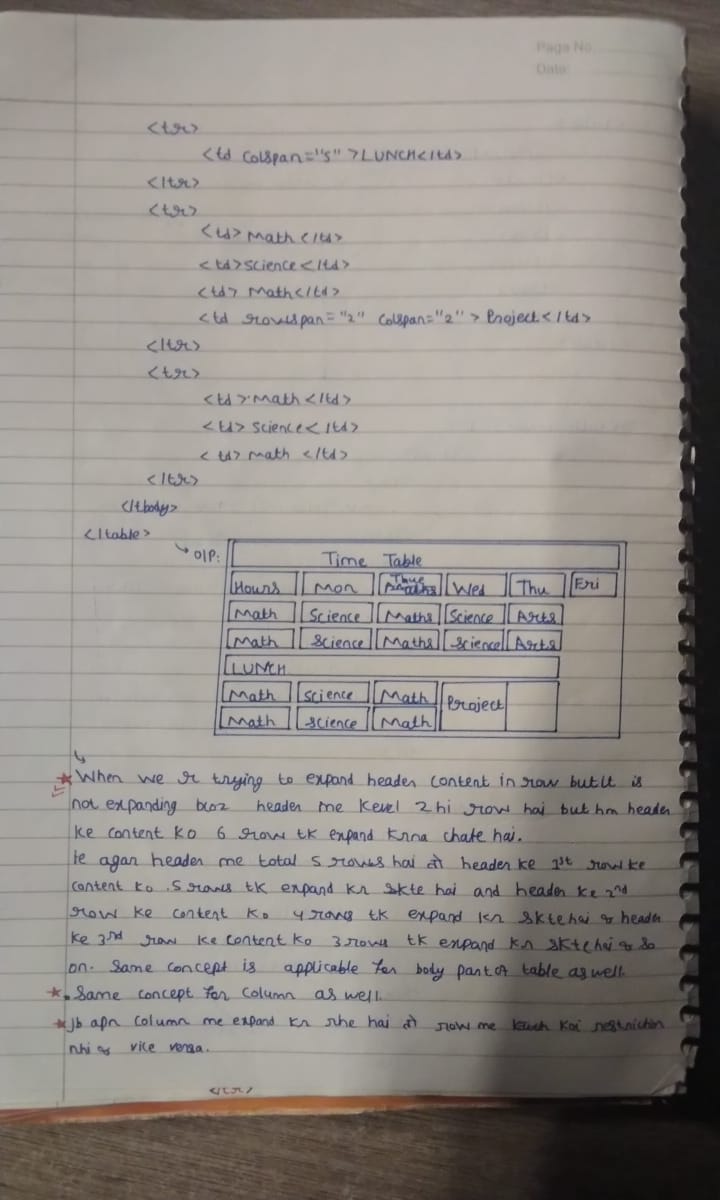 Page No.
Date:
<tr>
<td colspan="5">LUNCH</td>
</tr>
<tr>
<td>Math</td>
<td>Science</td>
<td>Math</td>
<td rowspan="2" colspan="2">Project</td>
</tr>
<tr>
<td>Math</td>
<td>Science</td>
<td>Math</td>
</tr>
</tbody>
</table>
O/P:
Time Table
Hours Mon Thue Wed Thu Eri
Math Science Maths Science Arts
Math Science Maths Science Arts
LUNCH
Math Science Math Project
Math Science Math
* When we r trying to expand header content in row but it is
not expanding bcoz header me kevel 2 hi row hai but hm header
ke content ko 6 row tk expand krna chate hai.
Ie agar header me total 5 rows hai तो header ke 1st row ke
content ko 5 rows tk expand kr skte hai and header ke 2nd
row ke content ko 4 rows tk expand kr skte hai & header
ke 3rd row ke content ko 3 rows tk expand kr skte hai & so
on. Same concept is applicable for body part of table as well.
* Same concept for column as well.
* Jb apn column me expand kr rhe hai तो row me koi restriction
nhi & vice versa.
</tr>